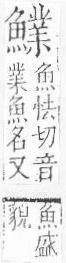 䲜
魚怯切音
業魚名又
魚盛
貌